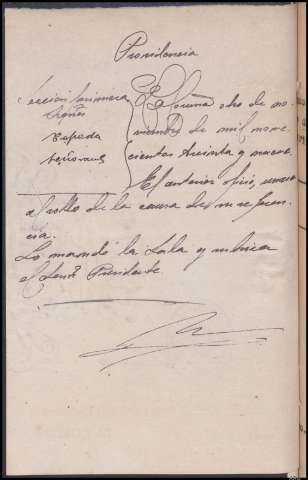 Providencia
Sección primera
Señores
Cepeda
La Coruña ocho de no
viembre de mil nove
cientos treinta y nueve.
El anterior oficio, unase
al rollo de la causa de su referen
cia.
Lo mandó la Sala y rubrica
el Señor Presidente